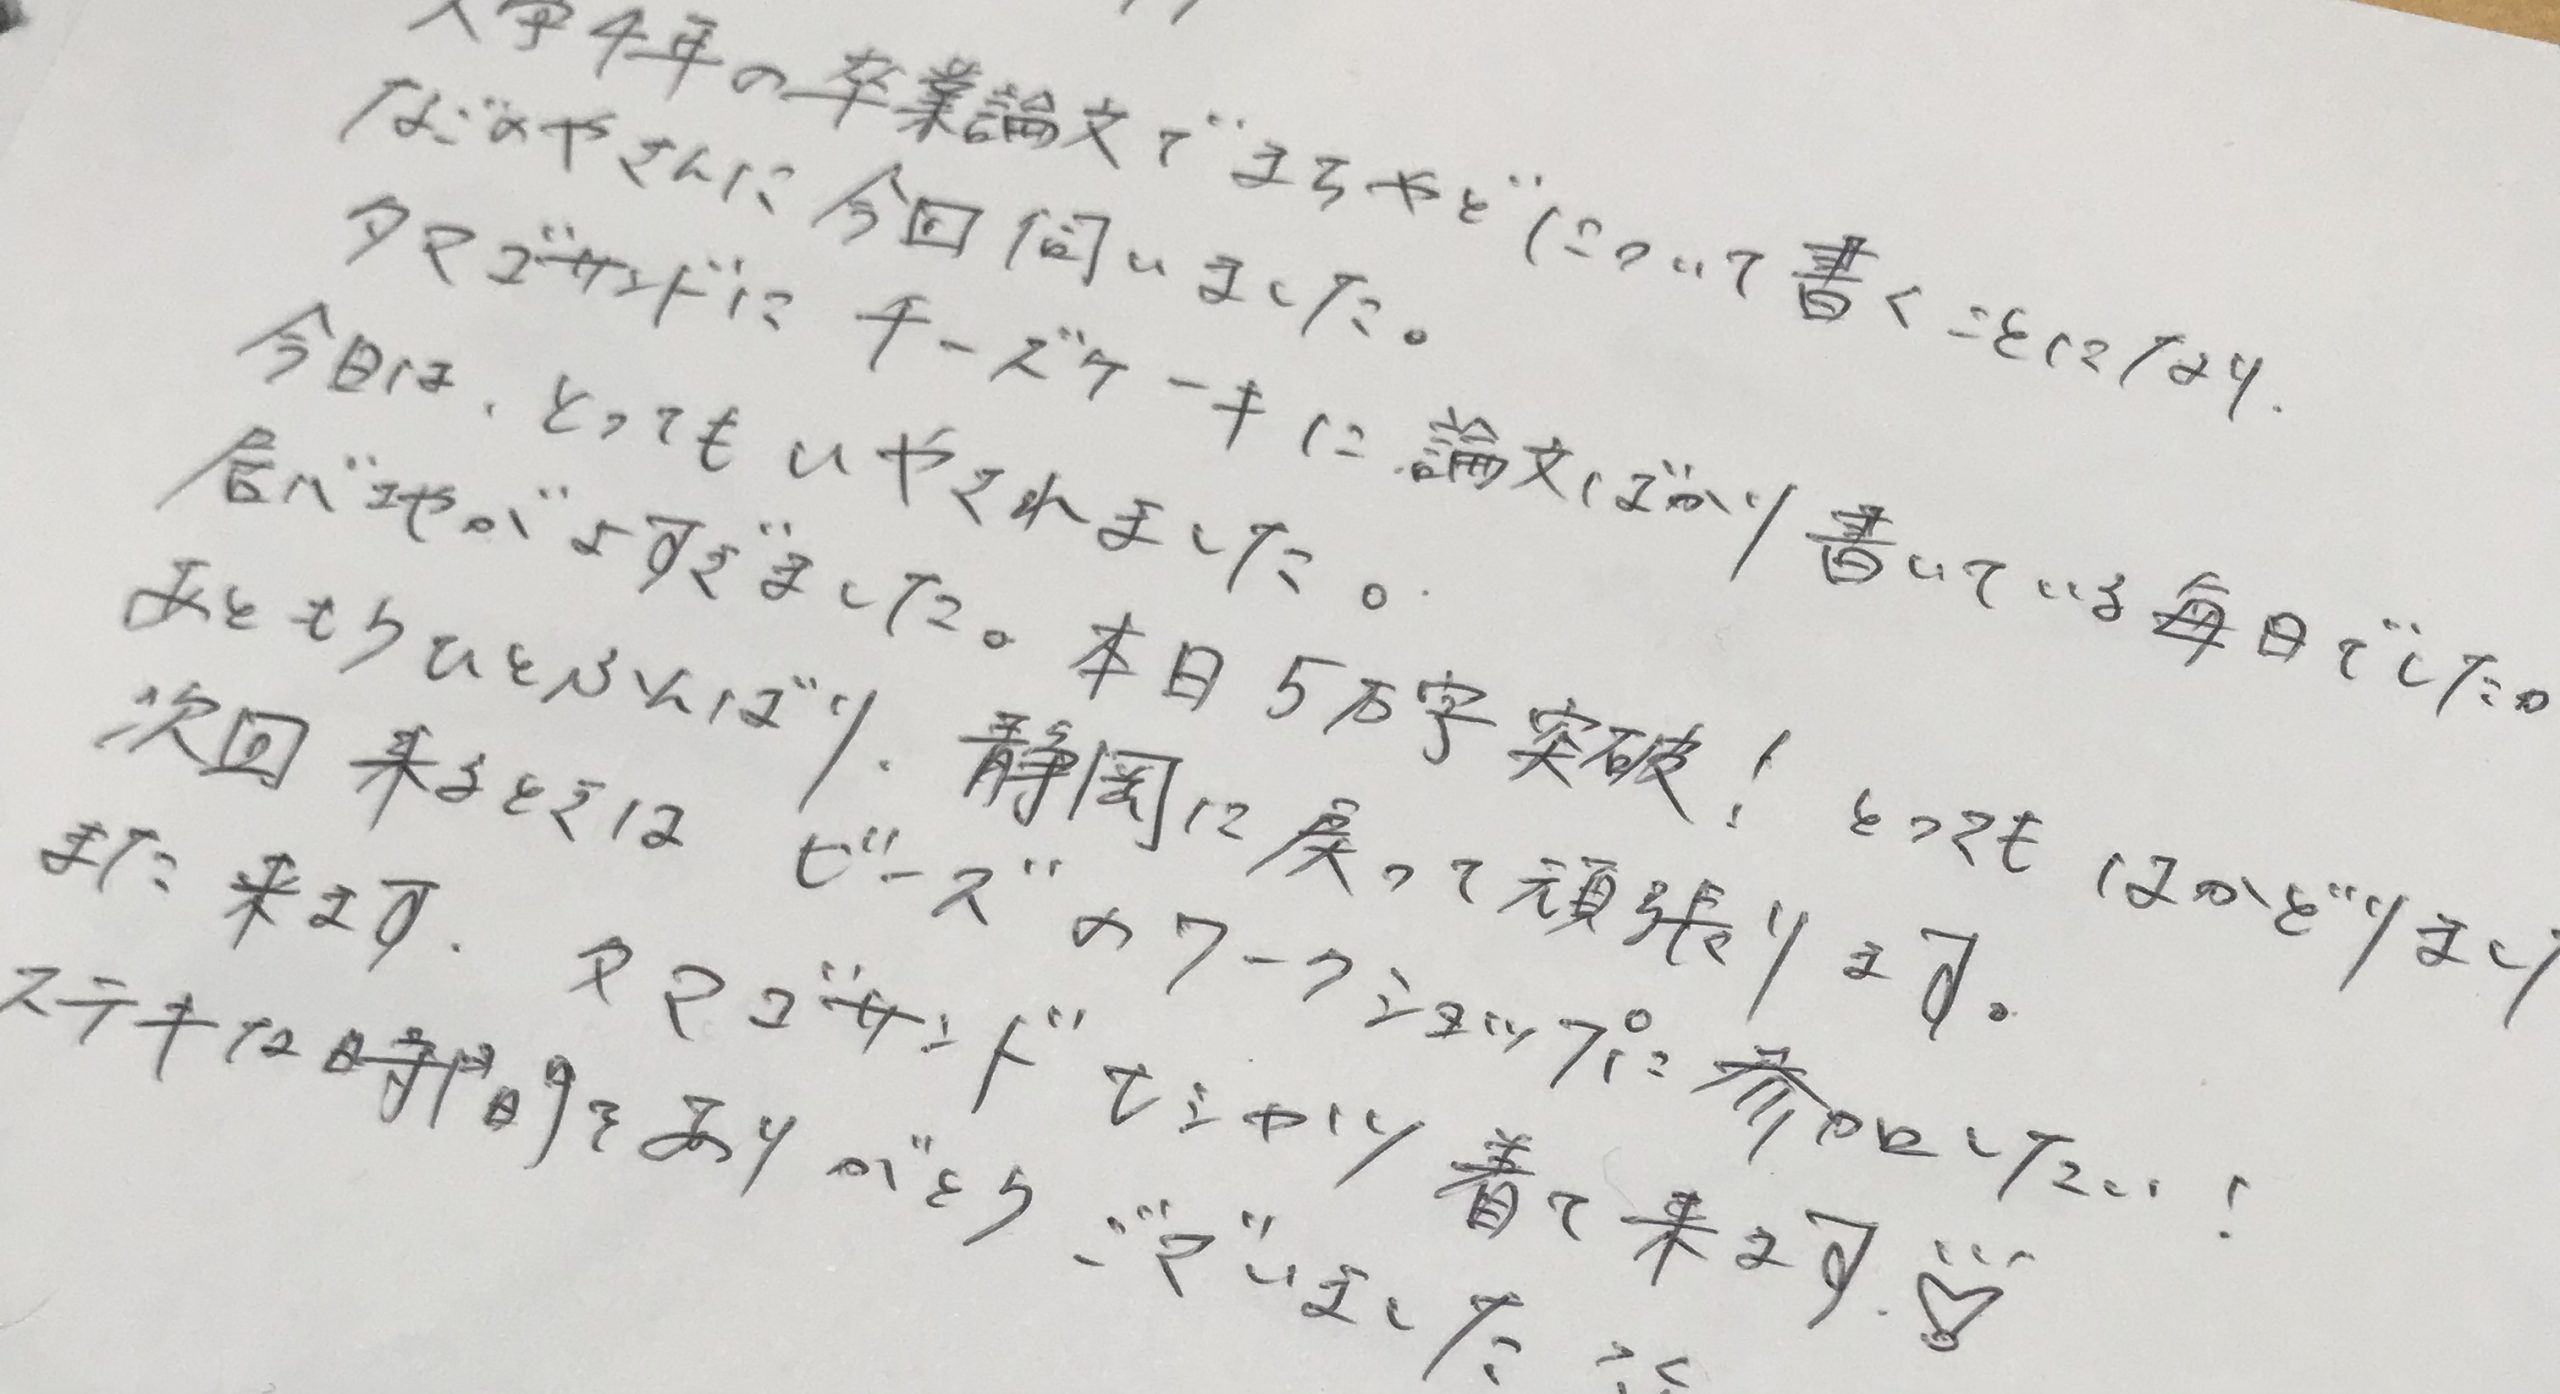 大学4年の卒業論文でまちやどについて書くことになり、
なごみやさんに今回伺いました。
タマゴサンドにチーズケーキに論文ばかり書いている毎日でした。
今日は、とってもいやされました。
居ごこちがよすぎました。本日5万字突破！とってもはかどりまし
あともうひとふんばり、静岡に戻って頑張ります。
次回来るときはビーズのワークショップに参加したい！
また来ます。タマゴサンドTシャツ着て来ます。♡
ステキな時間をありがとうございました